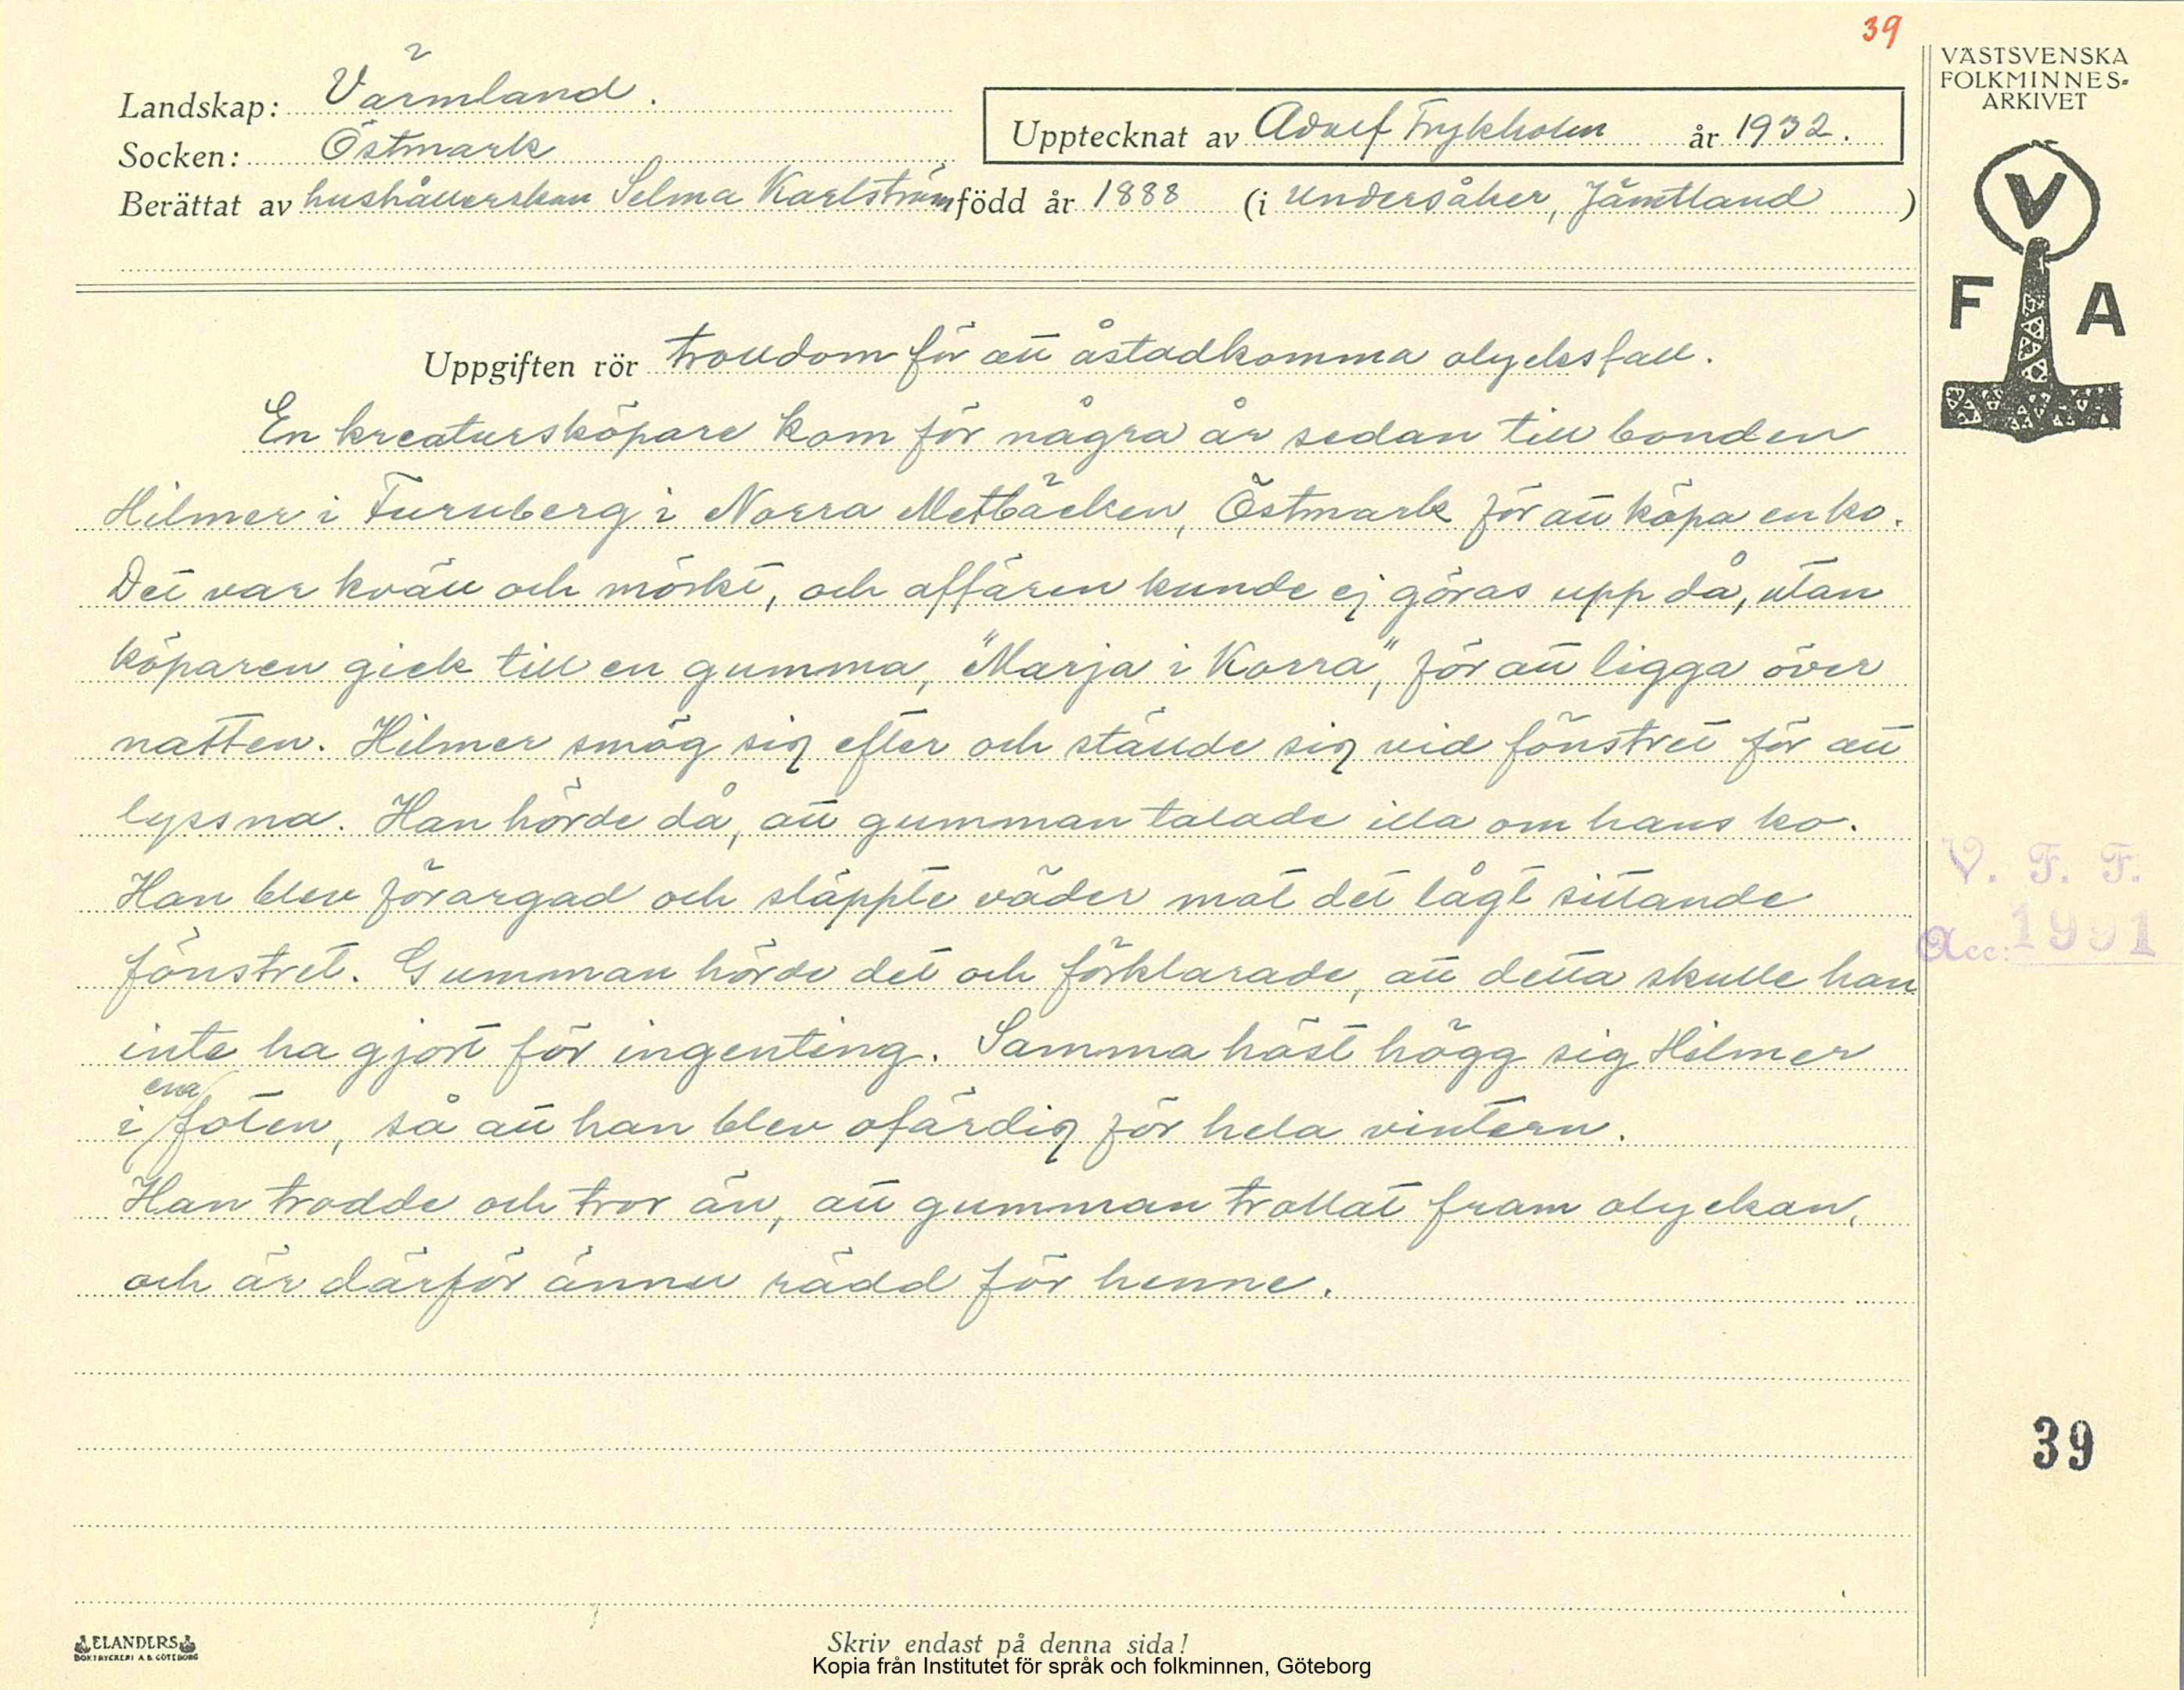 39
VÄSTSVENSKA
FOLKMINNES-
ARKIVET
V
F A
Landskap: Värmland.
Socken: Östmark
Upptecknat av Adolf Frykholm år 1932.
Berättat av hushållerskan Selma Karlström född år 1888 (i Undersåker, Jämtland )
Uppgiften rör trolldom för att åstadkomma olycksfall.
En kreatursköpare kom för några år sedan till bonden
Hilmer i Furuberg i Norra Metbäcken, Östmark för att köpa en ko.
Det var kväll och mörkt, och affären kunde ej göras upp då, utan
köparen gick till en gumma, "Marja i Korra", för att ligga över
natten. Hilmer smög sig efter och ställde sig vid fönstret för att
lyssna. Han hörde då, att gumman talade illa om hans ko.
Han blev förargad och släppte väder mot det lågt sittande
fönstret. Gumman hörde det och förklarade, att detta skulle han
inte ha gjort för ingenting. Samma höst högg sig Hilmer
i ena foten, så att han blev ofärdig för hela vintern.
Han trodde och tror än, att gumman trollat fram olyckan,
och är därför ännu rädd för henne.
V. F. F.
Acc: 1991
39
ELANDERS
BOKTRYCKERI A.B. GÖTEBORG
Skriv endast på denna sida!
Kopia från Institutet för språk och folkminnen, Göteborg